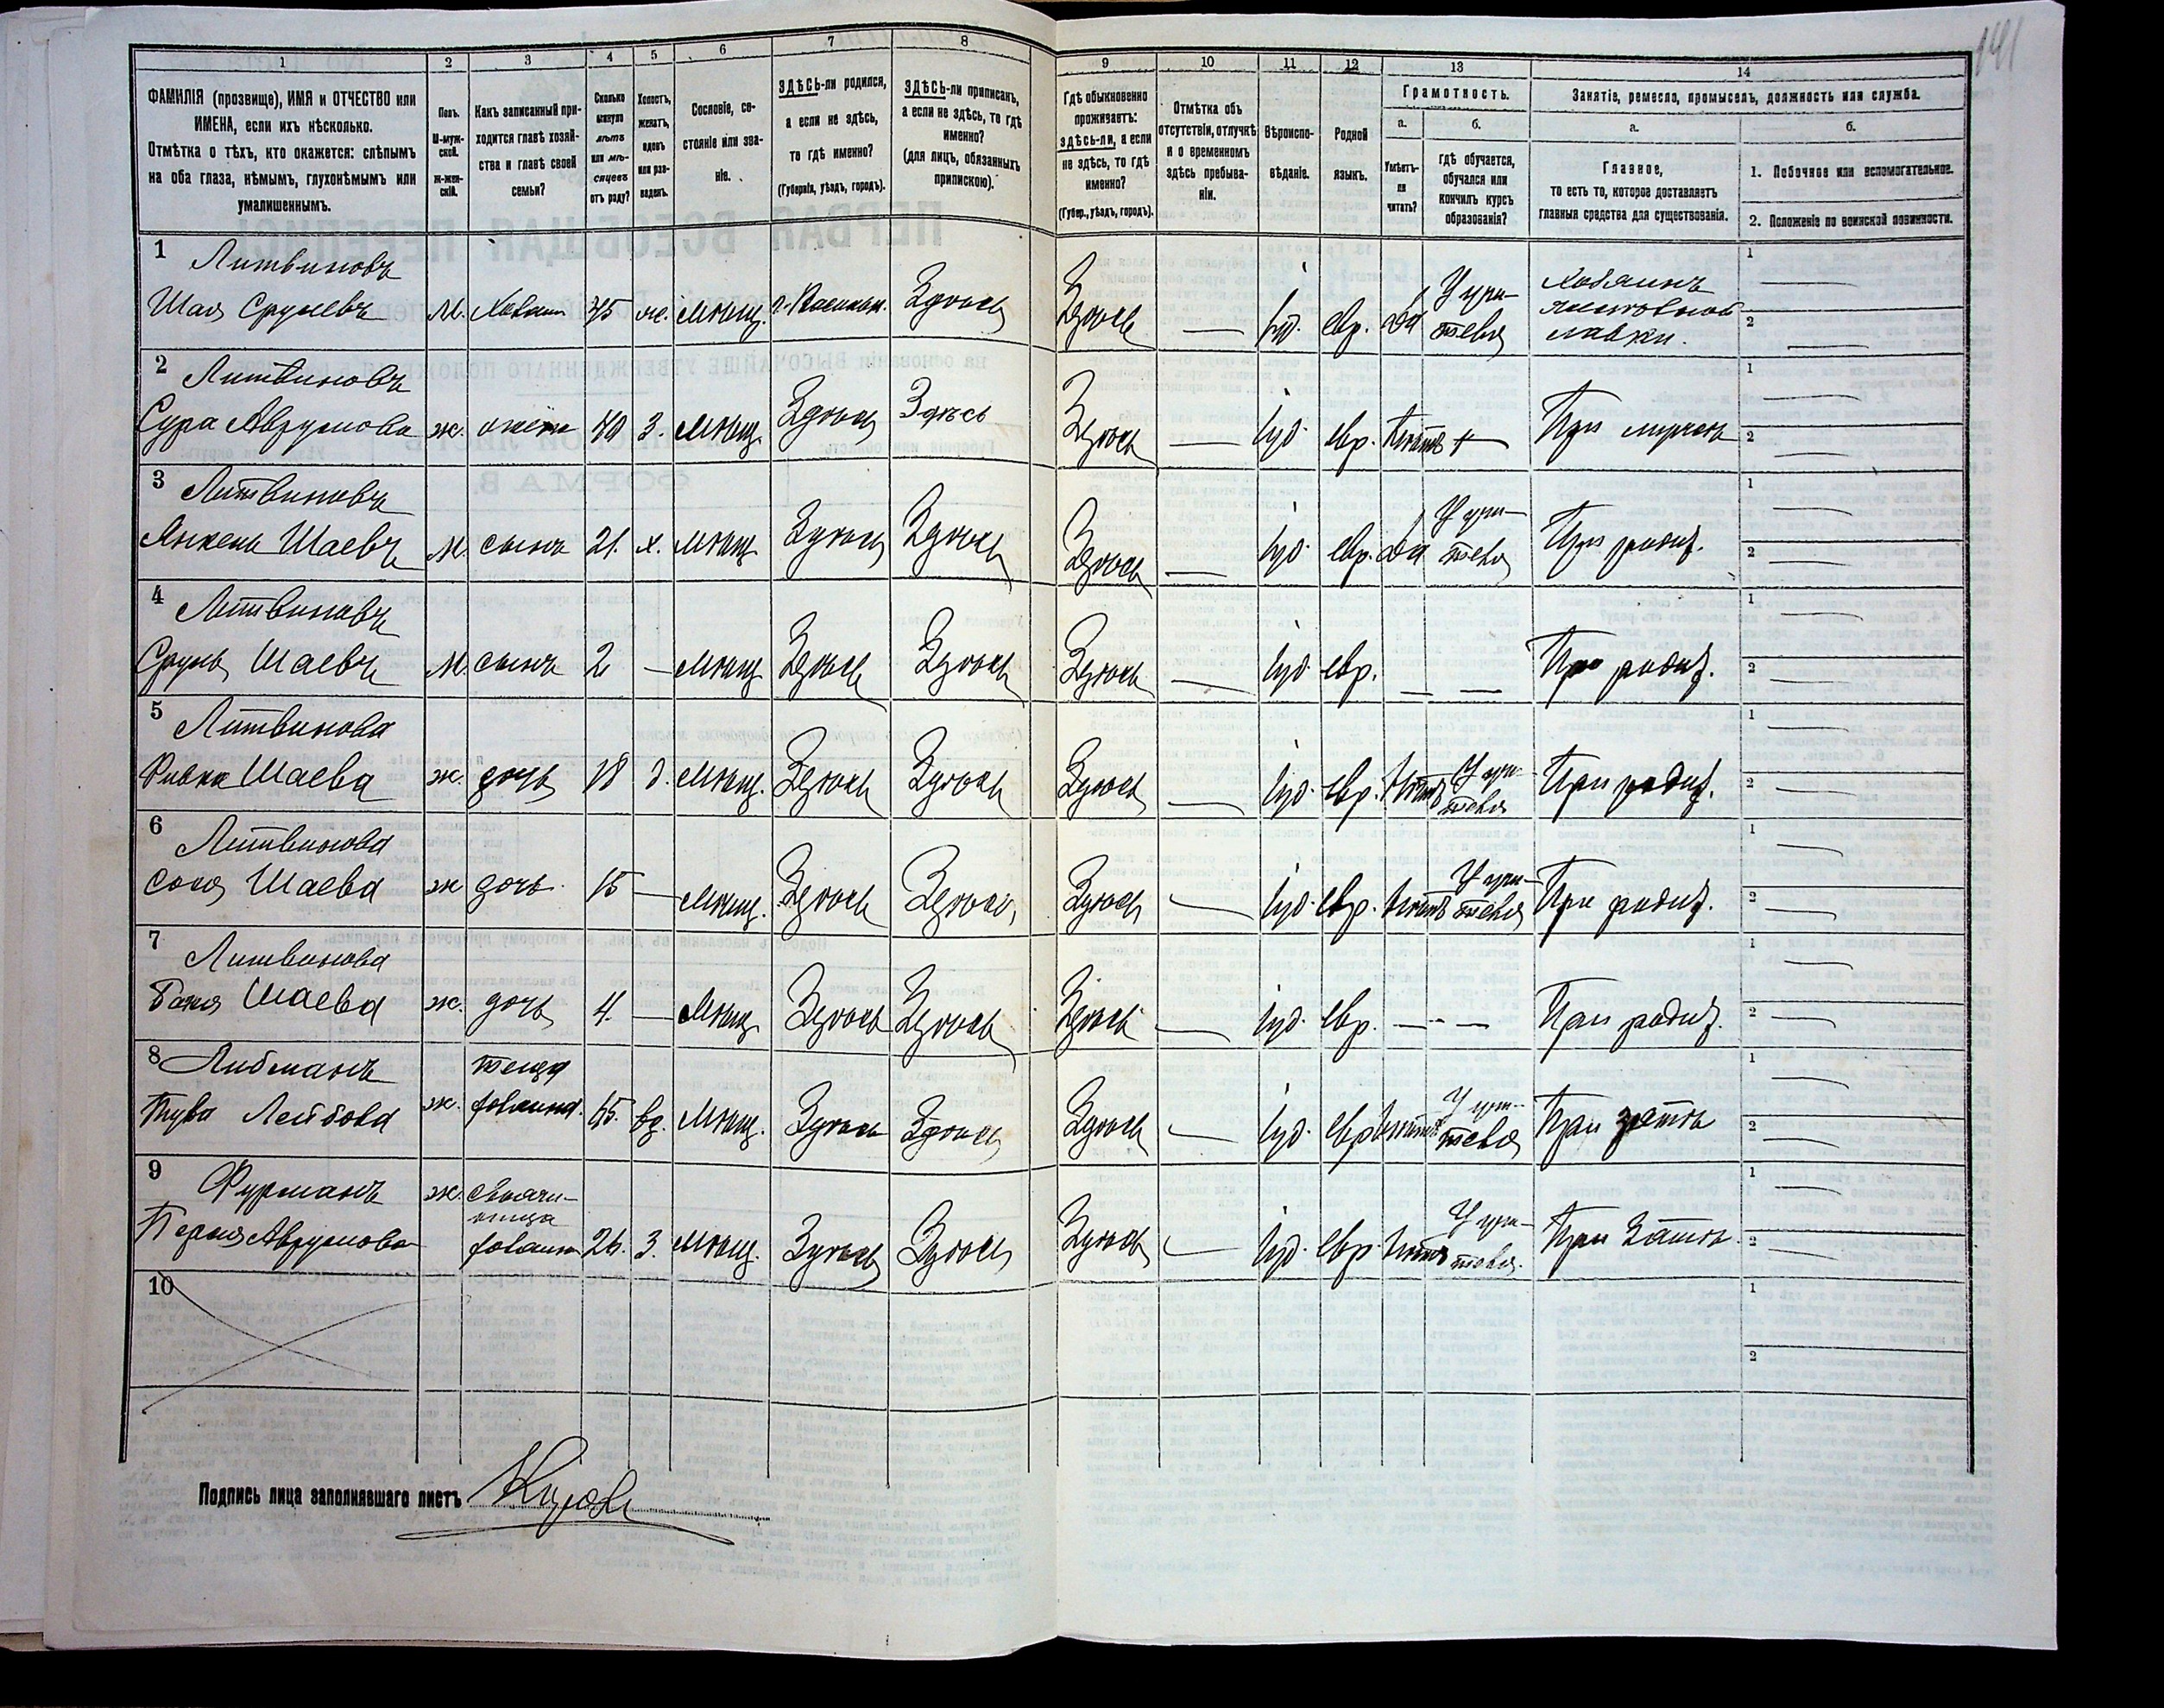 141
1 2 3 4 5 6 7 8 9 10 11 12 13 14
ФАМИЛІЯ (прозвище), ИМЯ и ОТЧЕСТВО или
ИМЕНА, если ихъ нѣсколько.
Отмѣтка о тѣхъ, кто окажется: слѣпымъ
на оба глаза, нѣмымъ, глухонѣмымъ или
умалишеннымъ.
Полъ.
М-муж-
ской.
Ж-жен-
скій.
Какъ записанный при-
ходится главѣ хозяй-
ства и главѣ своей
семьи?
Сколько
минуло
лѣтъ
или мѣ-
сяцевъ
отъ роду?
Холостъ,
женатъ,
вдовъ
или раз-
веденъ.
Сословіе, со-
стояніе или зва-
ніе.
ЗДѢСЬ-ли родился,
а если не здѣсь,
то гдѣ именно?
(Губернія, уѣздъ, городъ).
ЗДѢСЬ-ли приписанъ,
а если не здѣсь, то гдѣ
именно?
(для лицъ, обязанныхъ
припискою).
Гдѣ обыкновенно
проживаетъ:
здѣсь-ли, а если
не здѣсь, то гдѣ
именно?
(Губер., уѣздъ, городъ).
Отмѣтка объ
отсутствіи, отлучкѣ
и о временномъ
здѣсь пребыва-
ніи.
Вѣроиспо-
вѣданіе.
Родной
языкъ.
Грамотность.
а.
Умѣетъ-
ли
читать?
б.
гдѣ обучается,
обучался или
кончилъ курсъ
образованія?
Занятіе, ремесло, промыселъ, должность или служба.
а.
Главное,
то есть то, которое доставляетъ
главныя средства для существованія.
б.
1. Побочное или вспомогательное.
2. Положеніе по воинской повинности.
1 Литвиновъ
Шая Срулевъ М. Хозяин 45 ж. Мѣщ. Здѣсь Здѣсь — Іуд. евр. Да У учи-
теля
Хозяинъ
лавки.
1 —
2 —
2 Литвиновъ
Сура Аврумова ж. жена 40 З. Мѣщ. Здѣсь Здѣсь Здѣсь — Іуд. евр. Нѣтъ При мужѣ
1 —
2 —
3 Литвиновъ
Янкель Шаевъ М. сынъ 21. х. Мѣщ. Здѣсь Здѣсь Здѣсь — Іуд. евр. Да У учи-
теля
При родит.
1 —
2 —
4 Литвиновъ
Сруль Шаевъ М. сынъ 2 — Мѣщ. Здѣсь Здѣсь Здѣсь — Іуд евр. — — При родит.
1 —
2 —
5 Литвинова
Ривка Шаева ж. дочь 18 д. Мѣщ. Здѣсь Здѣсь Здѣсь — Іуд. евр. Нѣтъ У учи-
теля
При родит.
1 —
2 —
6 Литвинова
Соня Шаева ж дочь 15 — Мѣщ. Здѣсь Здѣсь Здѣсь — Іуд. евр. Нѣтъ У учи-
теля
При родит.
1 —
2 —
7 Литвинова
Шаева ж. дочь 4. — Мѣщ. Здѣсь Здѣсь Здѣсь — Іуд. евр. — — При родит.
1 —
2 —
8 Либманъ
Лейбова ж. теща
хозяина. вд. Мѣщ. Здѣсь Здѣсь Здѣсь — Іуд. евр. Нѣтъ У учи-
теля
При зятѣ
1 —
2 —
9 Фурманъ
Перля Аврумова ж. свояче-
ница
хозяина 26. З. Мѣщ. Здѣсь Здѣсь Здѣсь — Іуд. евр. Нѣтъ У учи-
теля.
При Зятѣ.
1 —
2 —
10
1
2
Подпись лица заполнявшаго листъ